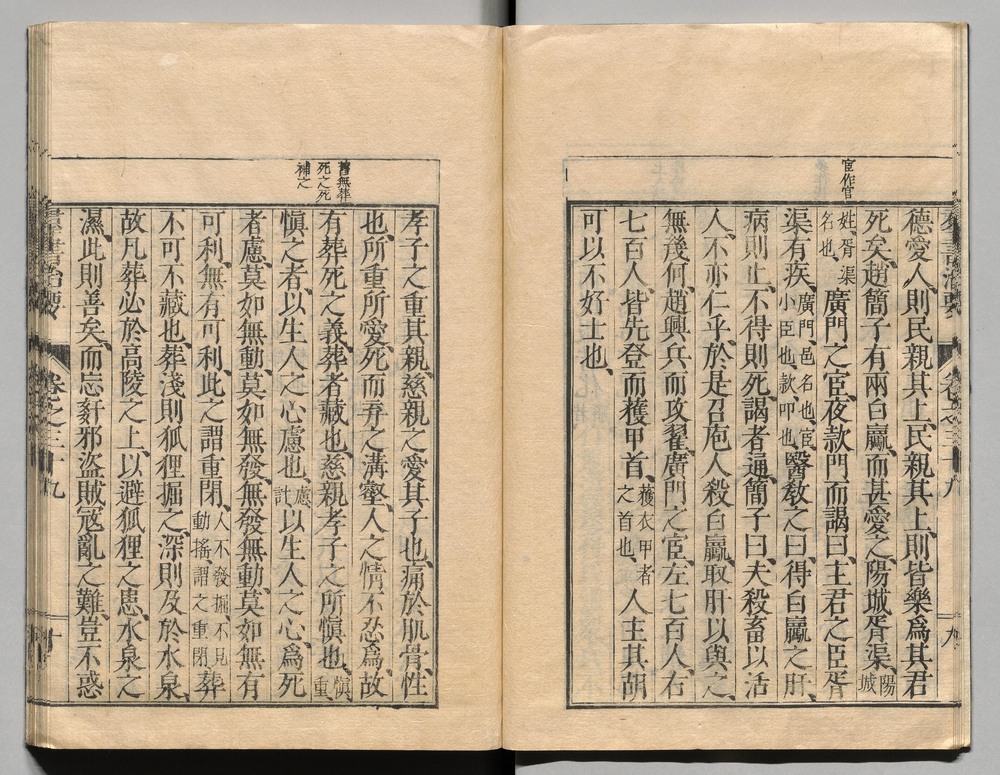 宦作官
德愛人、則民親其上、民親其上、則皆樂爲其君
死矣、趙簡子有兩白驘、而甚愛之、陽城胥渠、陽城
姓、胥渠名也、廣門之宦、夜款門而謁曰、主君之臣胥
渠有疾、廣門、邑名也、宦、小臣也、款、叩也、醫敎之曰、得白驘之肝、
病則止、不得則死、謁者通、簡子曰、夫殺畜以活
人、不亦仁乎、於是召庖人殺白驘、取肝以與之、
無幾何、趙興兵而攻翟、廣門之宦、左七百人、右
七百人、皆先登而穫甲首、穫衣甲者之首也、人主其胡
可以不好士也、
舊無葬
死之死
補之
孝子之重其親、慈親之愛其子也、痛於肌骨、性
也、所重所愛、死而弃之溝壑、人之情不忍爲、故
有葬死之義、葬者、藏也、慈親孝子之所愼也、愼、重
愼之者、以生人之心慮也、慮、計、以生人之心、爲死
者慮、莫如無動、莫如無發、無發無動、莫如無有
可利、無有可利、此之謂重閉、人不發掘、不見動搖、謂之重閉、葬
不可不藏也、葬淺則狐狸掘之、深則及於水泉、
故凡葬必於高陵之上、以避狐狸之患、水泉之
濕、此則善矣、而忘姧邪盜賊冦亂之難、豈不惑
群書治要
卷之三十九
十